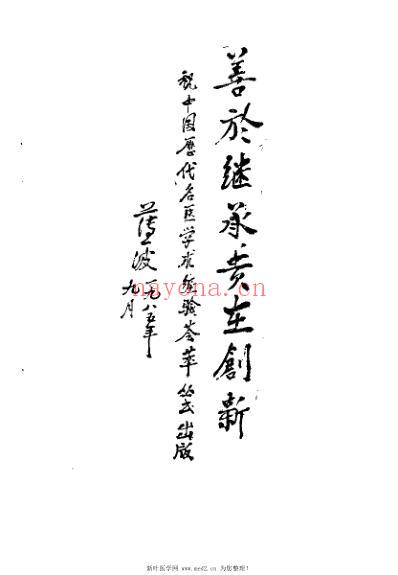 善於继承贵在創新
祝中国歷代名医学术经验荟萃丛书出版
薄一波 一九八五年
九月
nayona.cn
新叶医学网 www.med2.cn 为您整理!